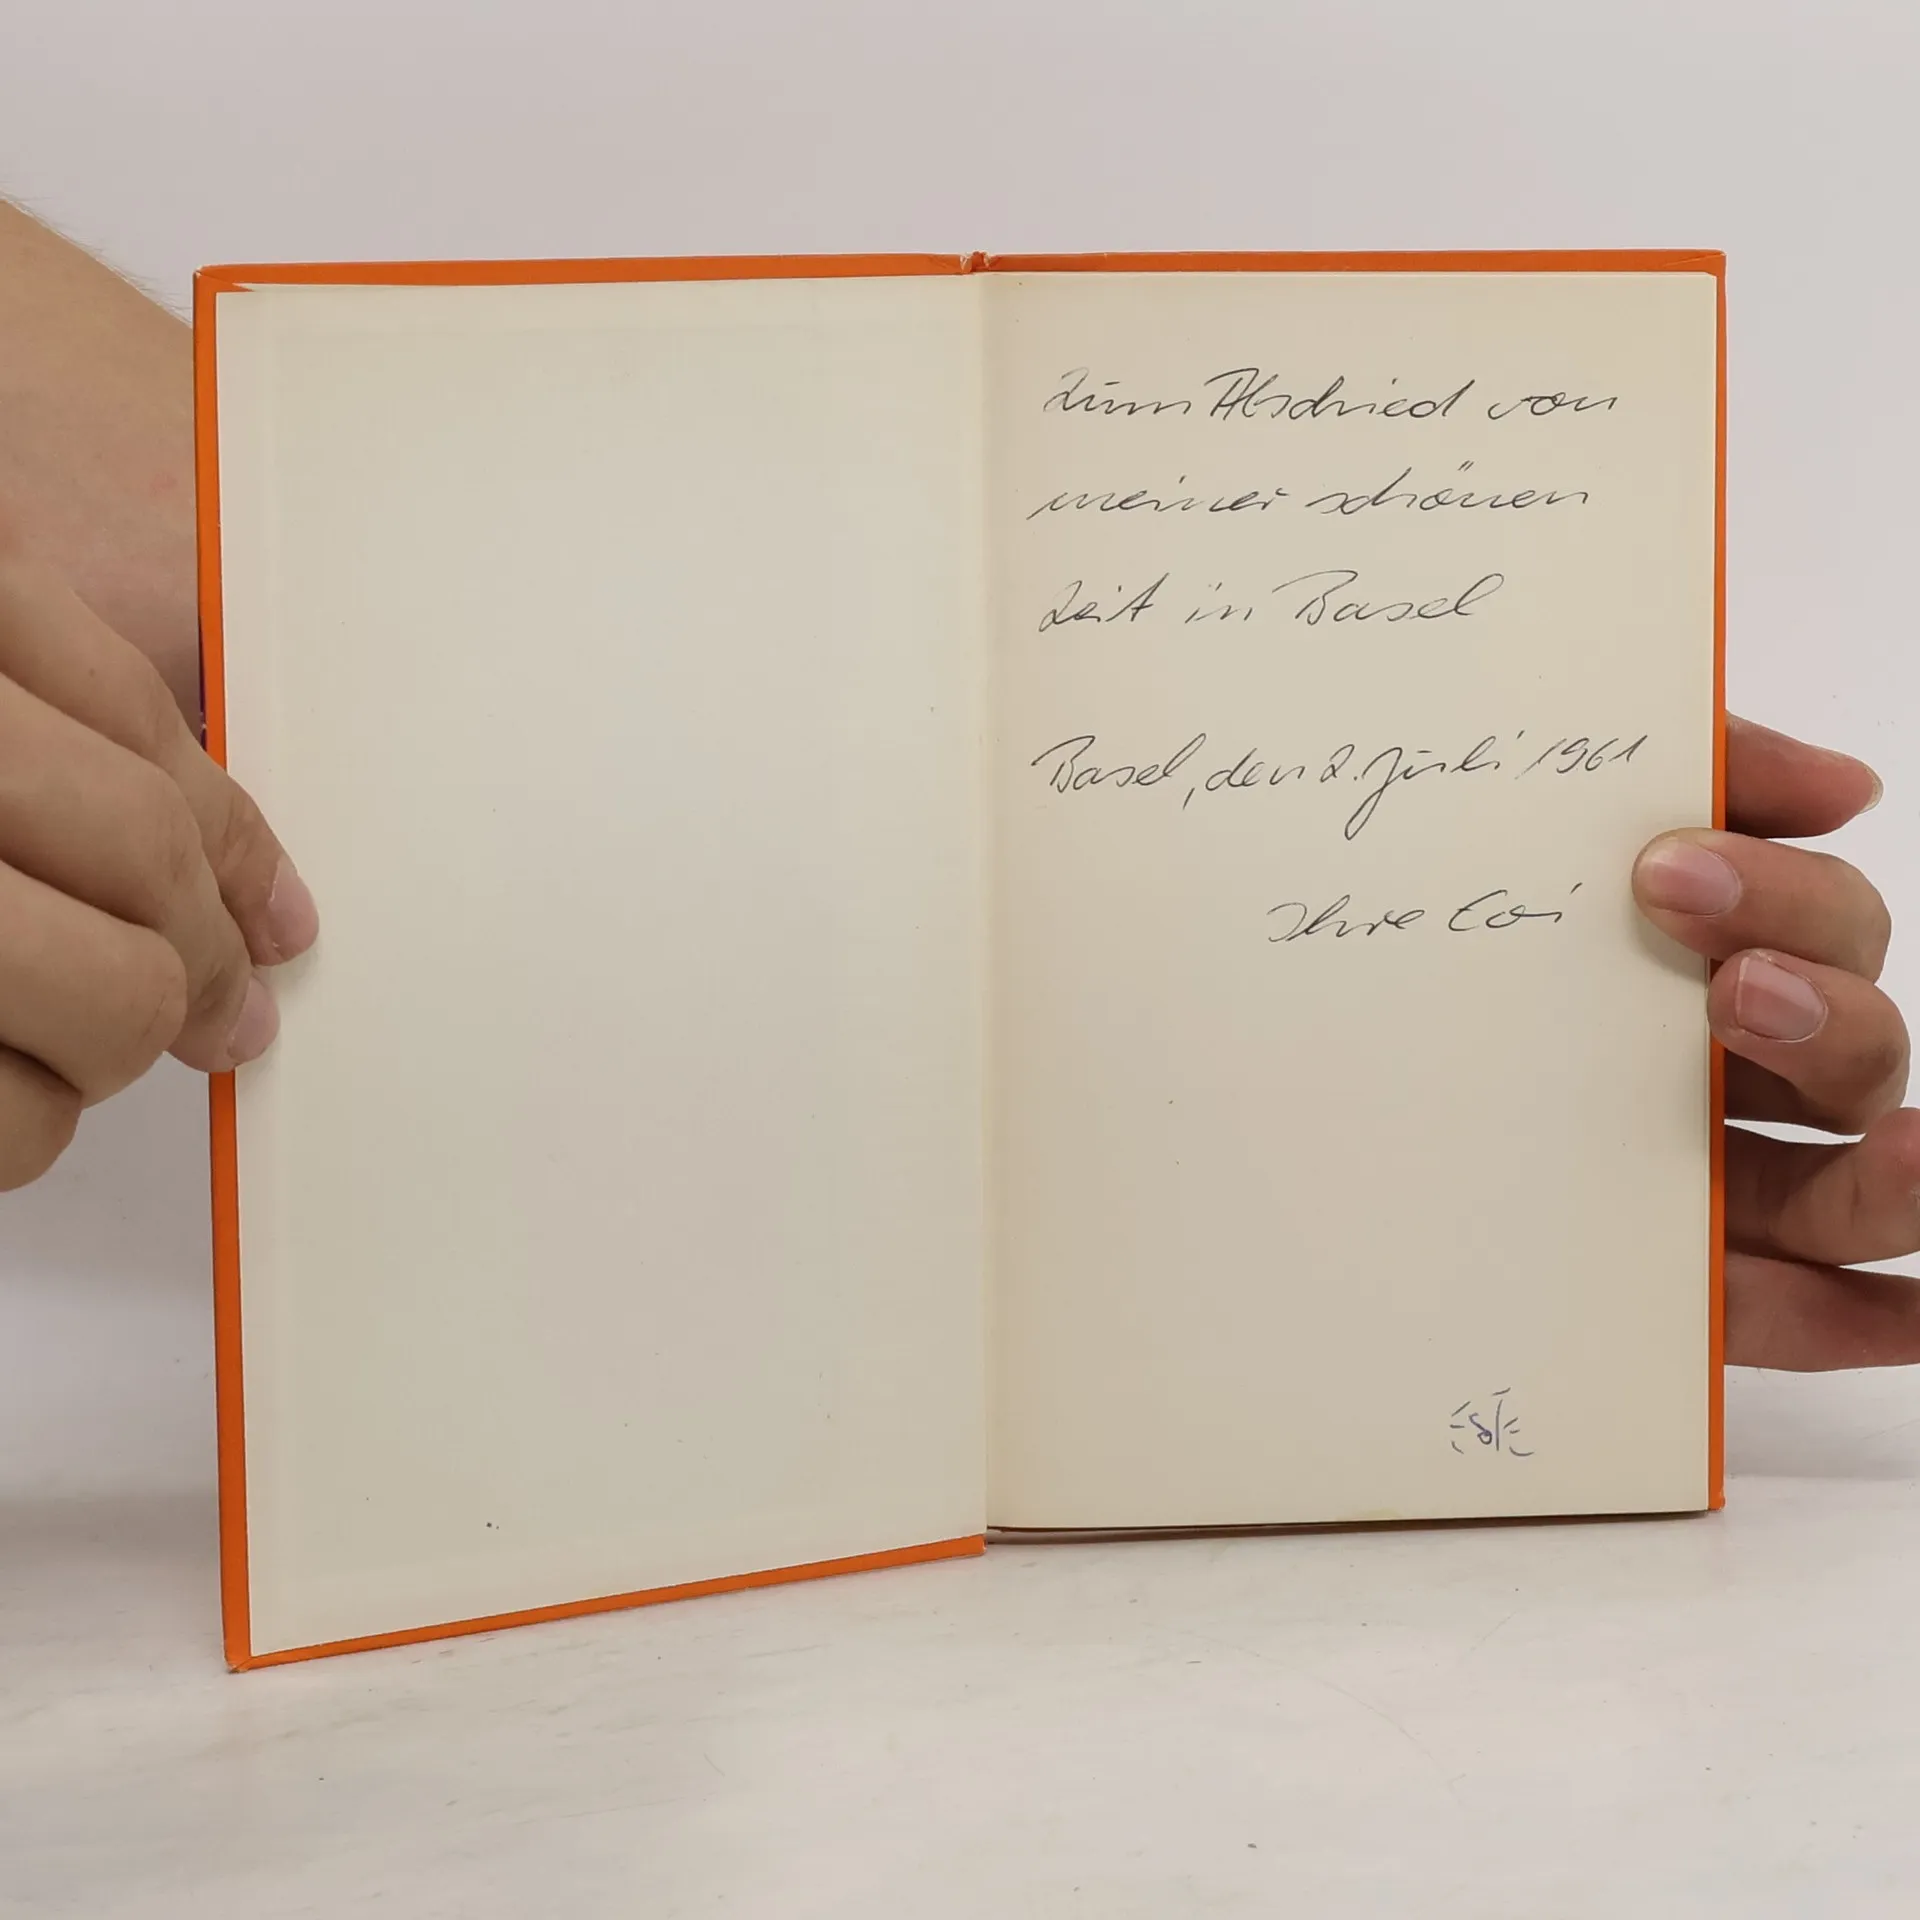 Zum Abschied von
meiner schönen
Zeit in Basel
Basel, den 2. Juli 1961
Ihre